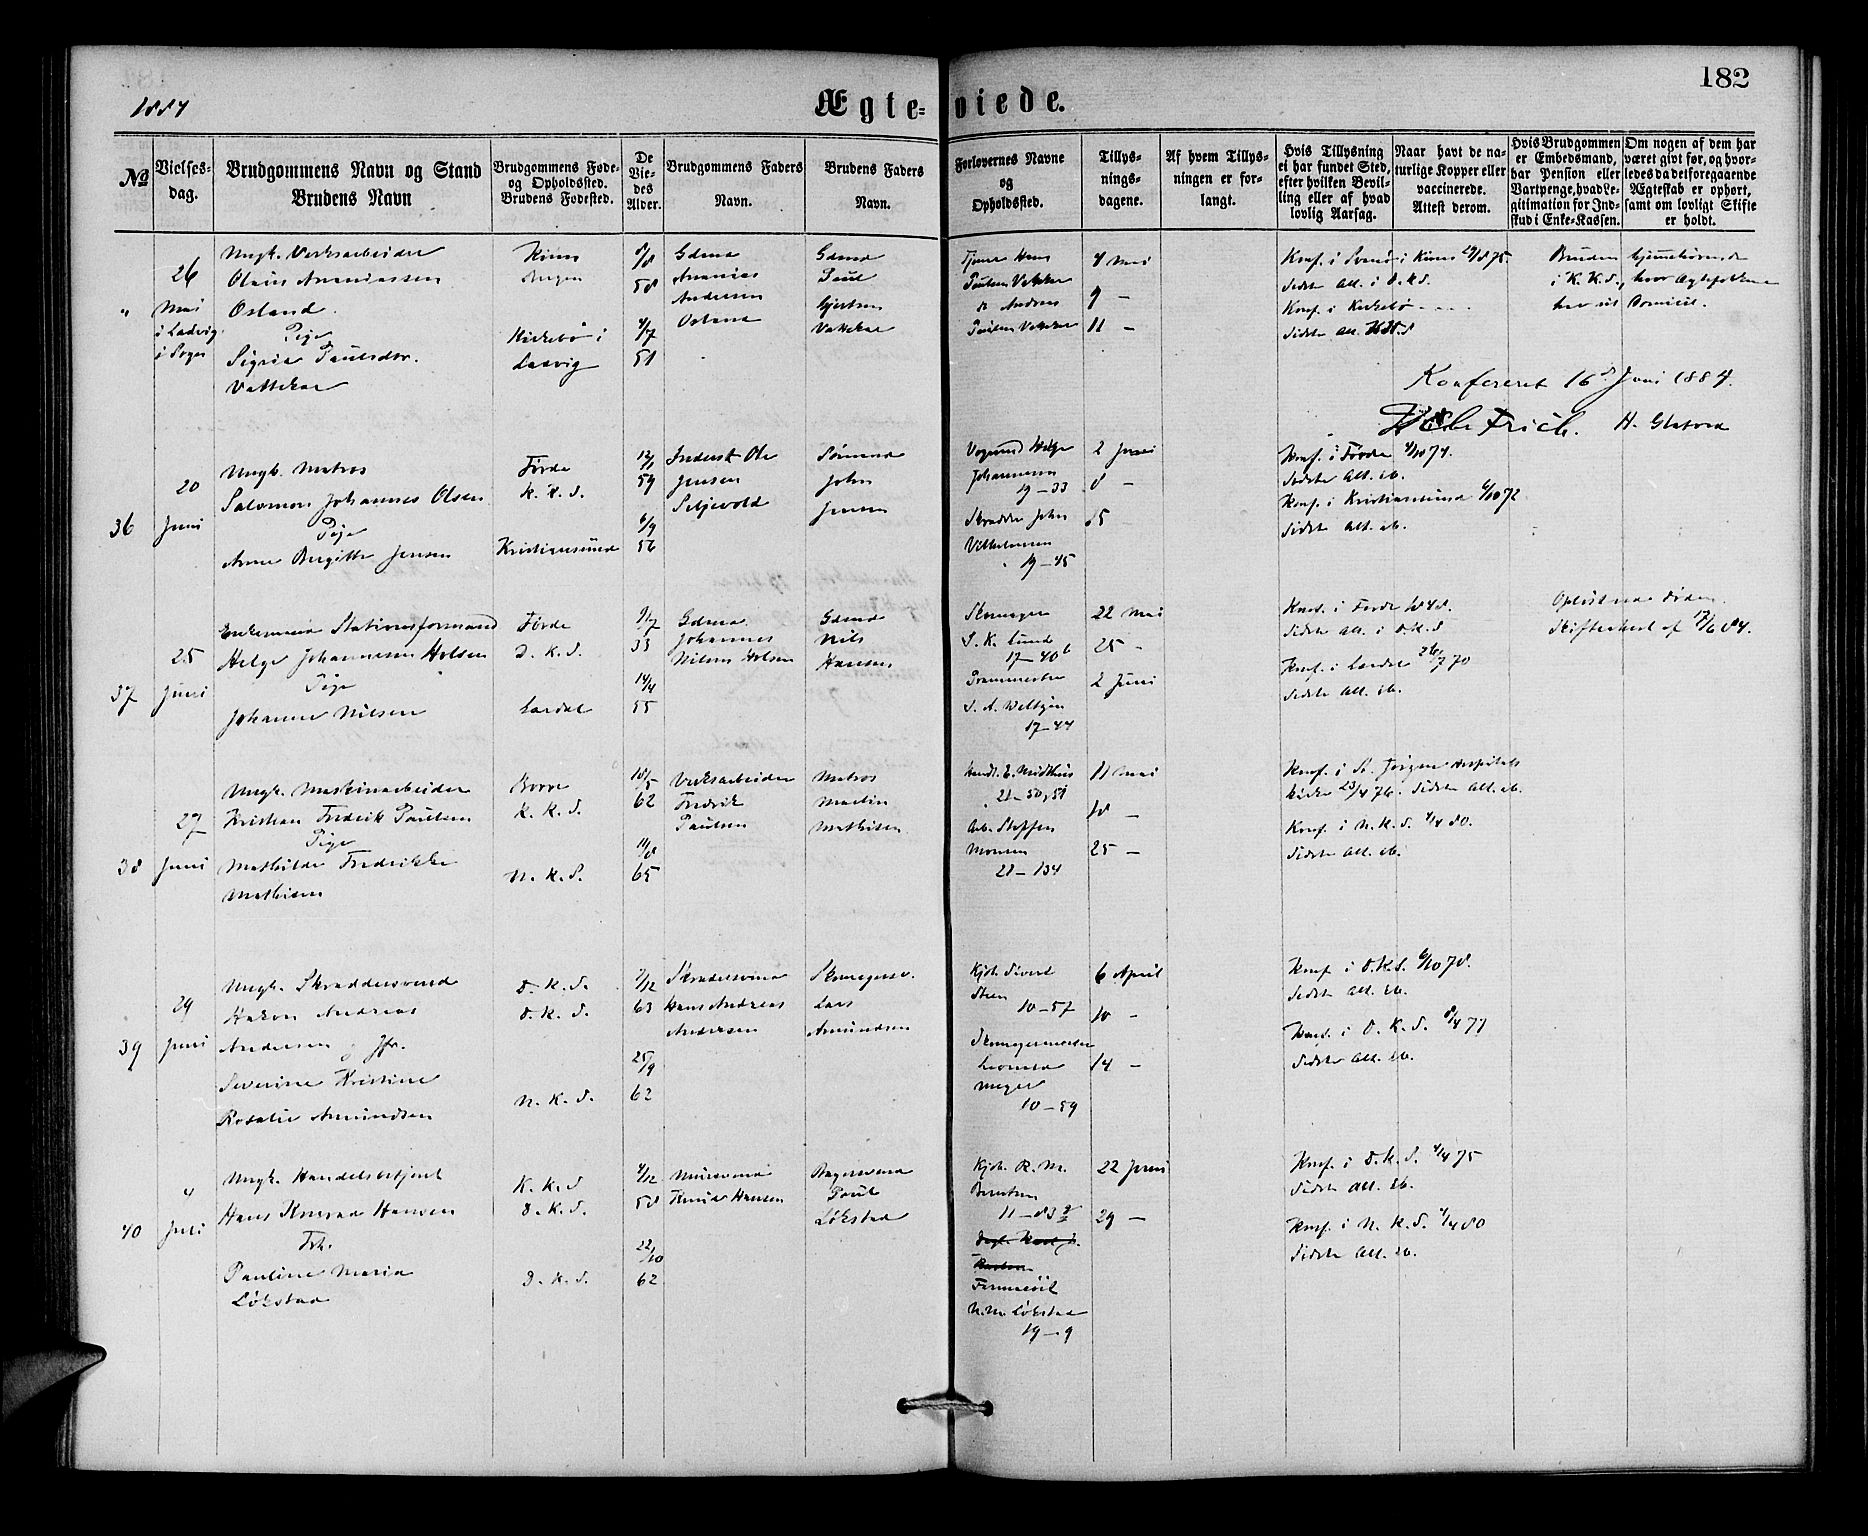 182
1884
Ægte-viede.
No
Vielses-dag.
Brudgommens Navn og Stand
Brudens Navn
Brudgommens Føde-
og Opholdssted.
Brudens Fødested.
De
Vie-
des
Alder.
Brudgommens Faders
Navn.
Brudens Faders
Navn.
Forlovernes Navne
og
Opholdssted.
Tillys-
nings-
dagene.
Af hvem Tillys-
ningen er for-
langt.
Hvis Tillysning
ei har fundet Sted,
efter hvilken Bevil-
ling eller af hvad
lovlig Aarsag.
Naar havt de na-
turlige Kopper eller
vaccinerede.
Attest derom.
Hvis Brudgommen
er Embedsmand,
har Pension eller
Vartpenge, hvad Le-
gitimation for Ind-
skud i Enke-Kassen.
Om nogen af dem har
været givt før, og hvor-
ledes da det foregaaende
Ægteskab er ophørt,
samt om lovligt Skifte
er holdt.
" 26 Mai i Ladvig i Sogn
Ungk. Verksarbeider
Olaus Ananiassen
Osland
Pige
Sigrid Paulsdtr.
Vattekar
Kinn
Bergen
Kirkebø i
Ladvig
8/8 58
4/7 51
Gdmd
Ananias
Andersen
Osland
Gdmd
Paul
Gjertsen
Vattekar
Tjener Hans
Paulsen Vattekar
& Andreas
Paulsen Vattekar
4 Mai
9 —
11 —
Konf. i Svanø i Kinn 29/8 75.
Sidste Alt. i D.K.S.
Konf. i Kirkebø - - -
Sidste Alt.
Bruden hjemmehørende
i K.K.S., hvor Ægtefolkene
har sit Domicil.
Konfereret 16d Juni 1884.
Frich. H. Glatved
36 20 Juni
Ungk. Matros
Salomon Johannes Olsen
Pige
Anne Birgitte Jensen
Førde
K.K.S.
Kristiansund
12/1 59
6/9 56
Inderst Ole
Jensen
Seljevold
Sømand
John
Jensen
Vognmd Helge
Johannesen
19 — 33
Skrædder John
Vilhelmsen
19 — 45
2 Juni
8 —
15
Konf. i Førde 4/10 74.
Sidste Alt. ib.
Konf. i Kristiansund 6/10 72
Sidste Alt. ib.
37 25 Juni
Enkemand Stationsformand
Helge Johannesen Holsen
Pige
Johanne Nilsen
Førde
D.K.S.
Lærdal
9/7 33
14/4 55
Gdmd
Johannes
Nilsen Holsen
Gdmd
Nils
Hansen
Skomager
S. K. Lund
17 — 40b
Prammester
S. A. Weltzin
17 — 44
22 Mai
25 -
2 Juni
Konf. i Førde 1848.
Sidste Alt. i D.K.S
Konf. i Lærdal 26/7 70
Sidste Alt. ib.
Skifteattest af 17/6 84.
38 27 Juni
Ungk. Maskinarbeider
Kristian Fredrik Paulsen
Pige
Mathilde Fredrikke
Mathisen
Borre
K.K.S.
N.K.S.
18/5 62
11/8 65
Verksarbeider
Fredrik
Paulsen
Matros
Martin
Mathisen
Handl. E. Midthus
21 — 50, 51
Arb. Steffen
Monsen
21 — 134
11 Mai
18 —
25 —
Konf. i St. Jørgens Hospitals
kirke 23/4 76. Sidste Alt. ib.
Konf. i N.K.S. 4/4 80.
Sidste Alt. ib.
39 29 Juni
Ungk. Skræddersvend
Hakon Andreas
Andersen, Jfr.
Severine Kristine
Rosalie Amundsen
D.K.S.
D.K.S.
N.K.S.
2/12 63
25/9 62
Skrædersvend
Hans Andreas
Andersen
Skomagersv.
Lars
Amundsen
Kjøb. Sivert
Steen
10 — 57
Skomagermester
Leonard
Meyer
10 — 59
6 April
10 -
14 —
Konf. i D.K.S. 6/10 78.
Sidste Alt. ib.
Konf. i D.K.S. 8/4 77
Sidste Alt. ib.
40 4 Juli
Ungk. Handelsbetjent
Hans Konrad Hansen
Frk.
Pauline Maria
Løkstad
K.K.S
D.K.S.
D.K.S.
4/12 58
22/10 62
Mursvend
Knud Hansen
Bagersvend
Paul
Løkstad
Kjøb. R. M.
Berntsen
11 — 83
N. M. Løkstad
19 — 9
22 Juni
29 —
Konf. i D.K.S. 4/4 75
Sidste Alt. ib.
Konf. i N.K.S. 4/4 80
Sidste Alt. ib.